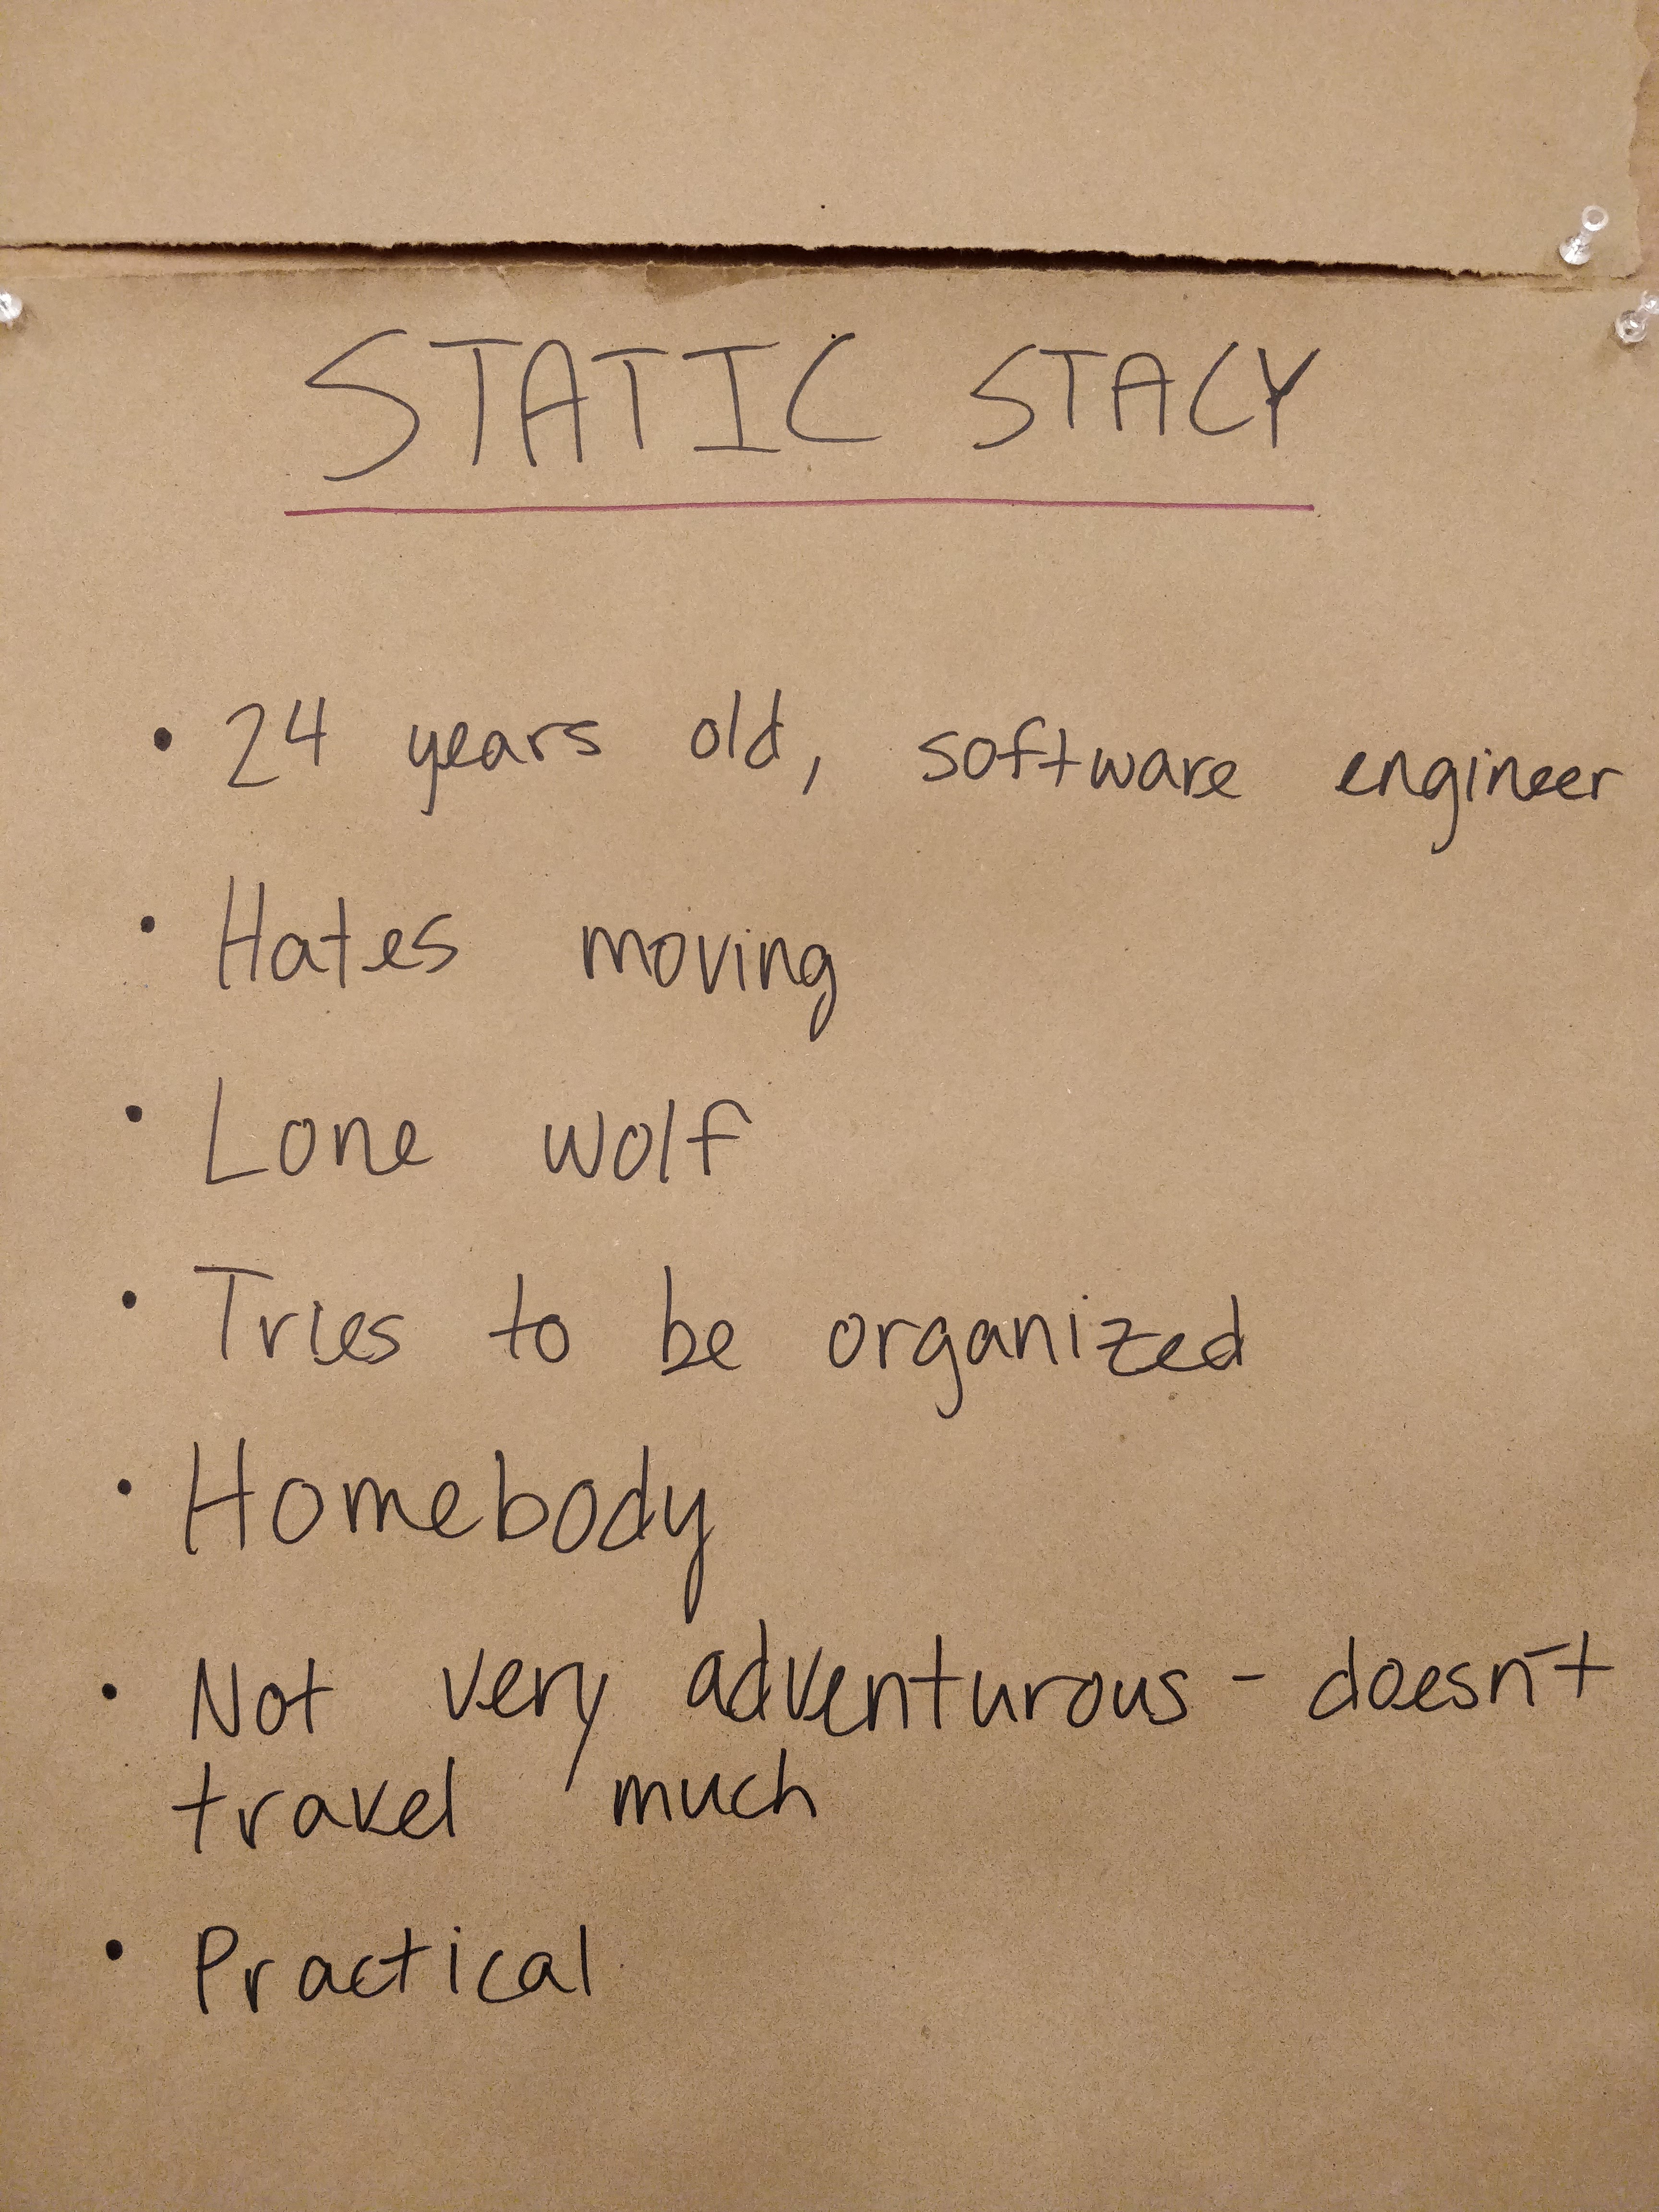 STATIC STACY
• 24 years old, software engineer
• Hates moving
• Lone wolf
• Tries to be organized
• Homebody
• Not very adventurous - doesn't
travel much
• Practical